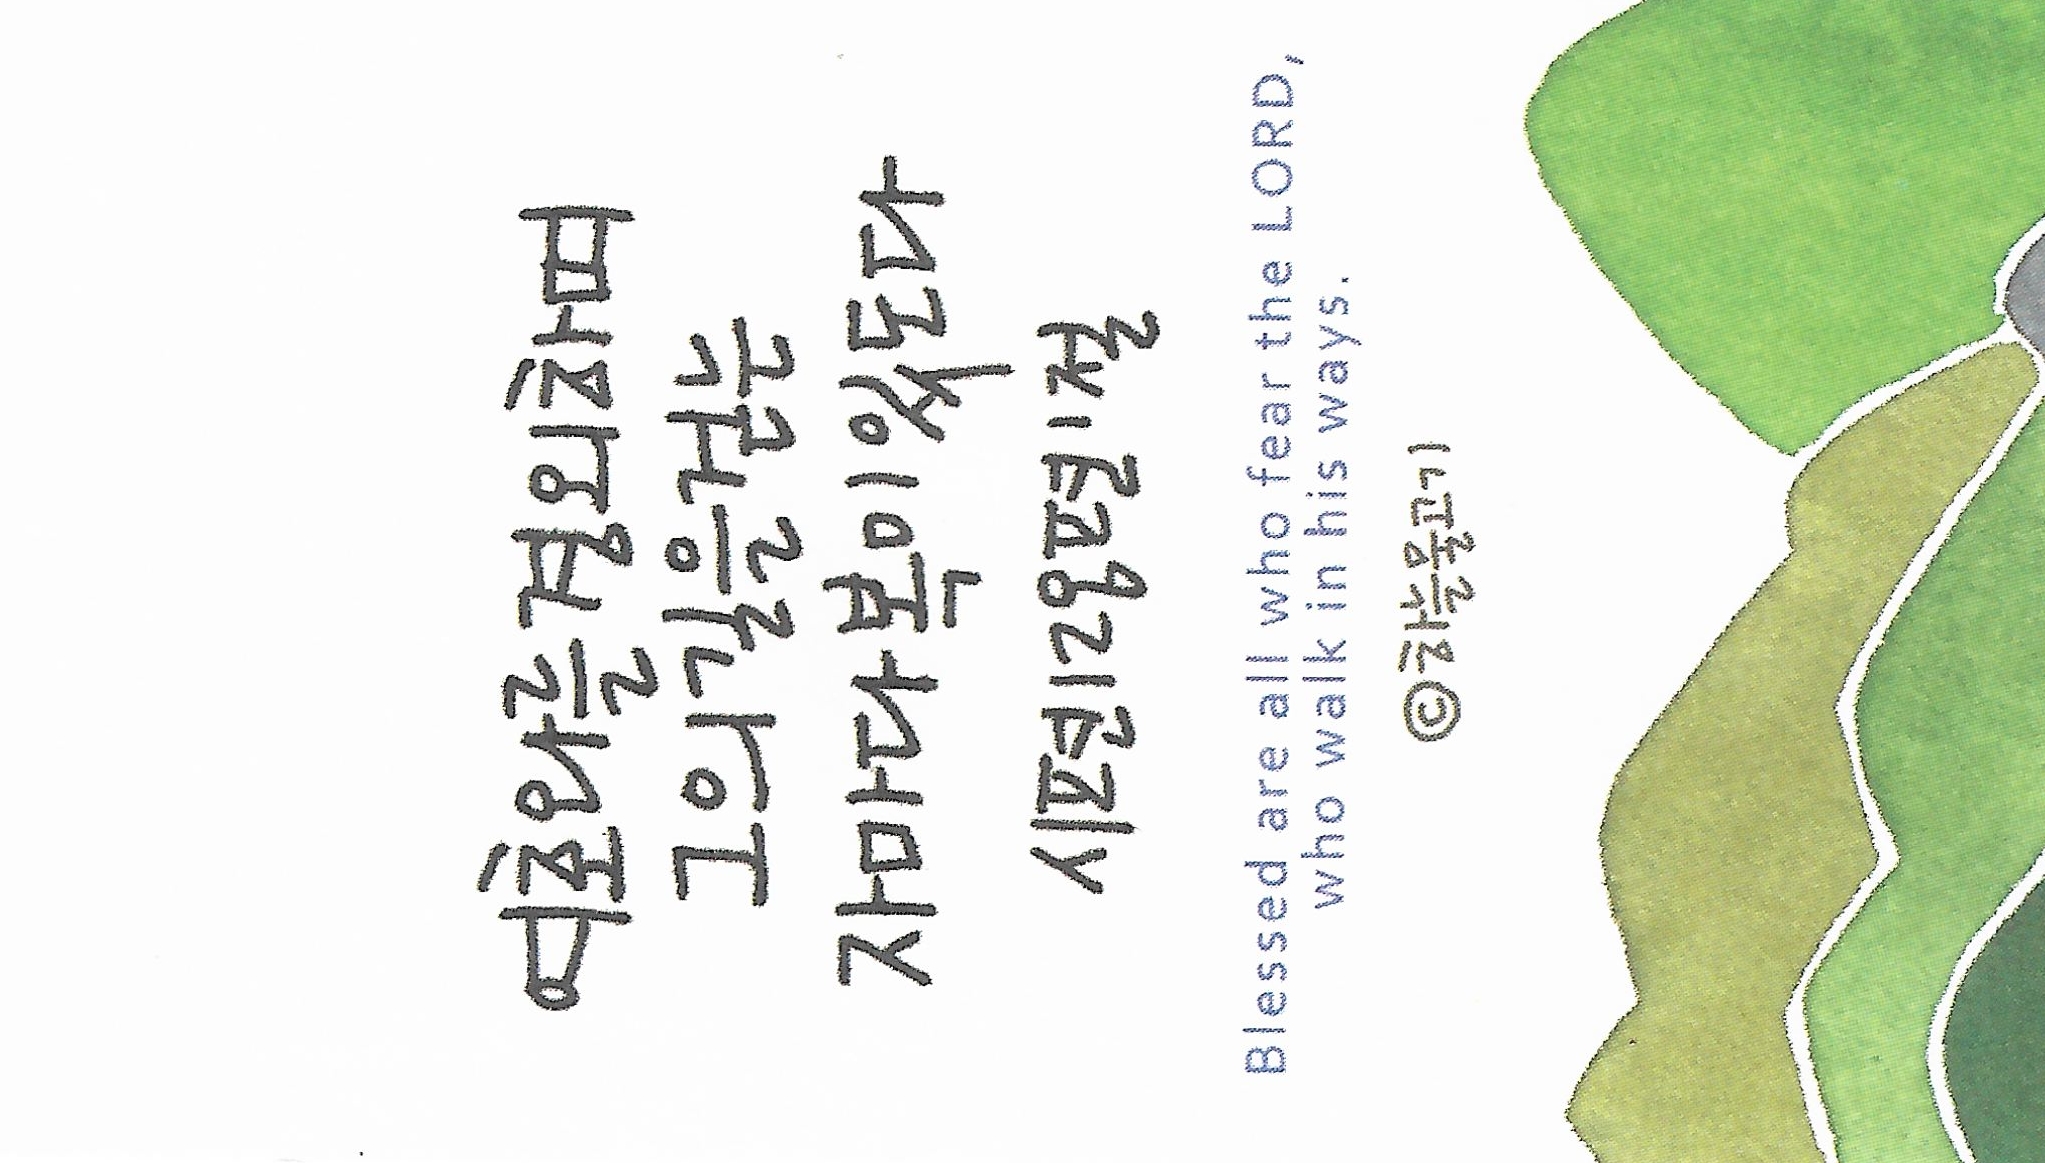 여호와를 경외하며
그의 길을 걷는
자마다 복이 있도다
시편 128편 1절
Blessed are all who fear the LORD,
who walk in his ways.
©하늘물고기